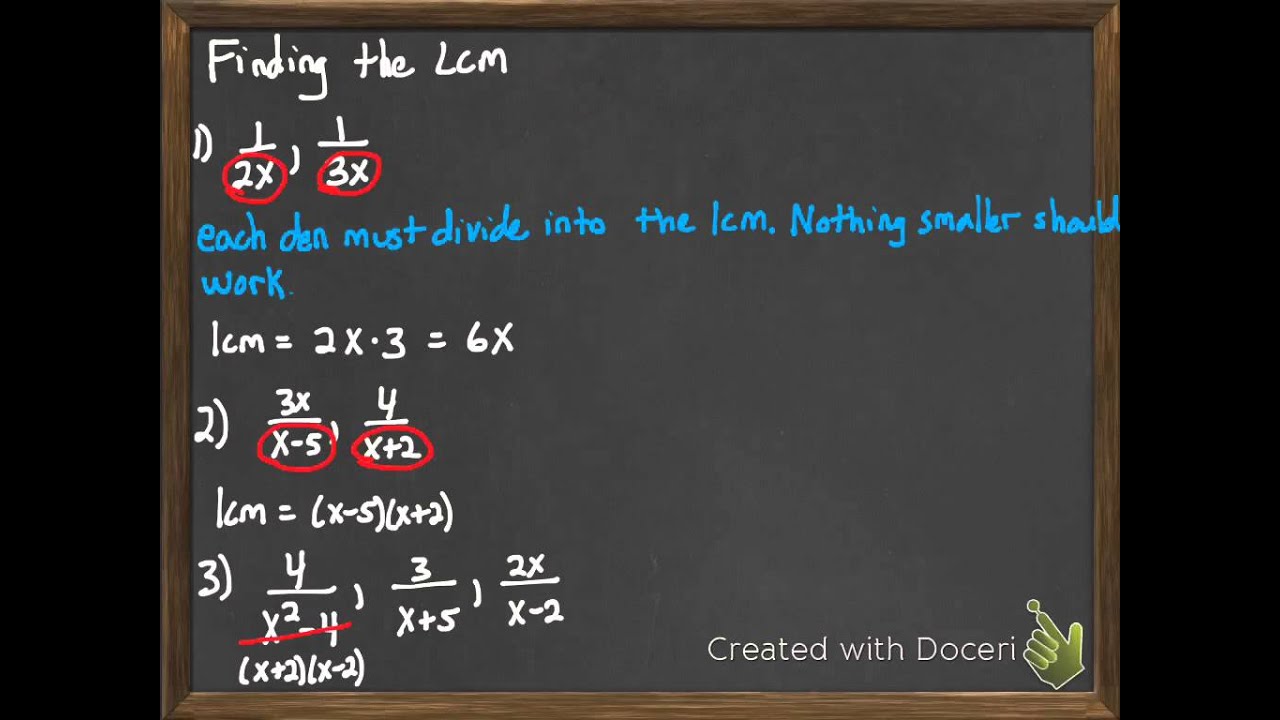 Finding the Lcm
1) 1/2x, 1/3x
each den must divide into the lcm. Nothing smaller should
work.
lcm = 2x·3 = 6x
2) 3x/x-5, 4/x+2
lcm = (x-5)(x+2)
3) 4/x²-4, 3/x+5, 2x/x-2
(x+2)(x-2)
Created with Doceri